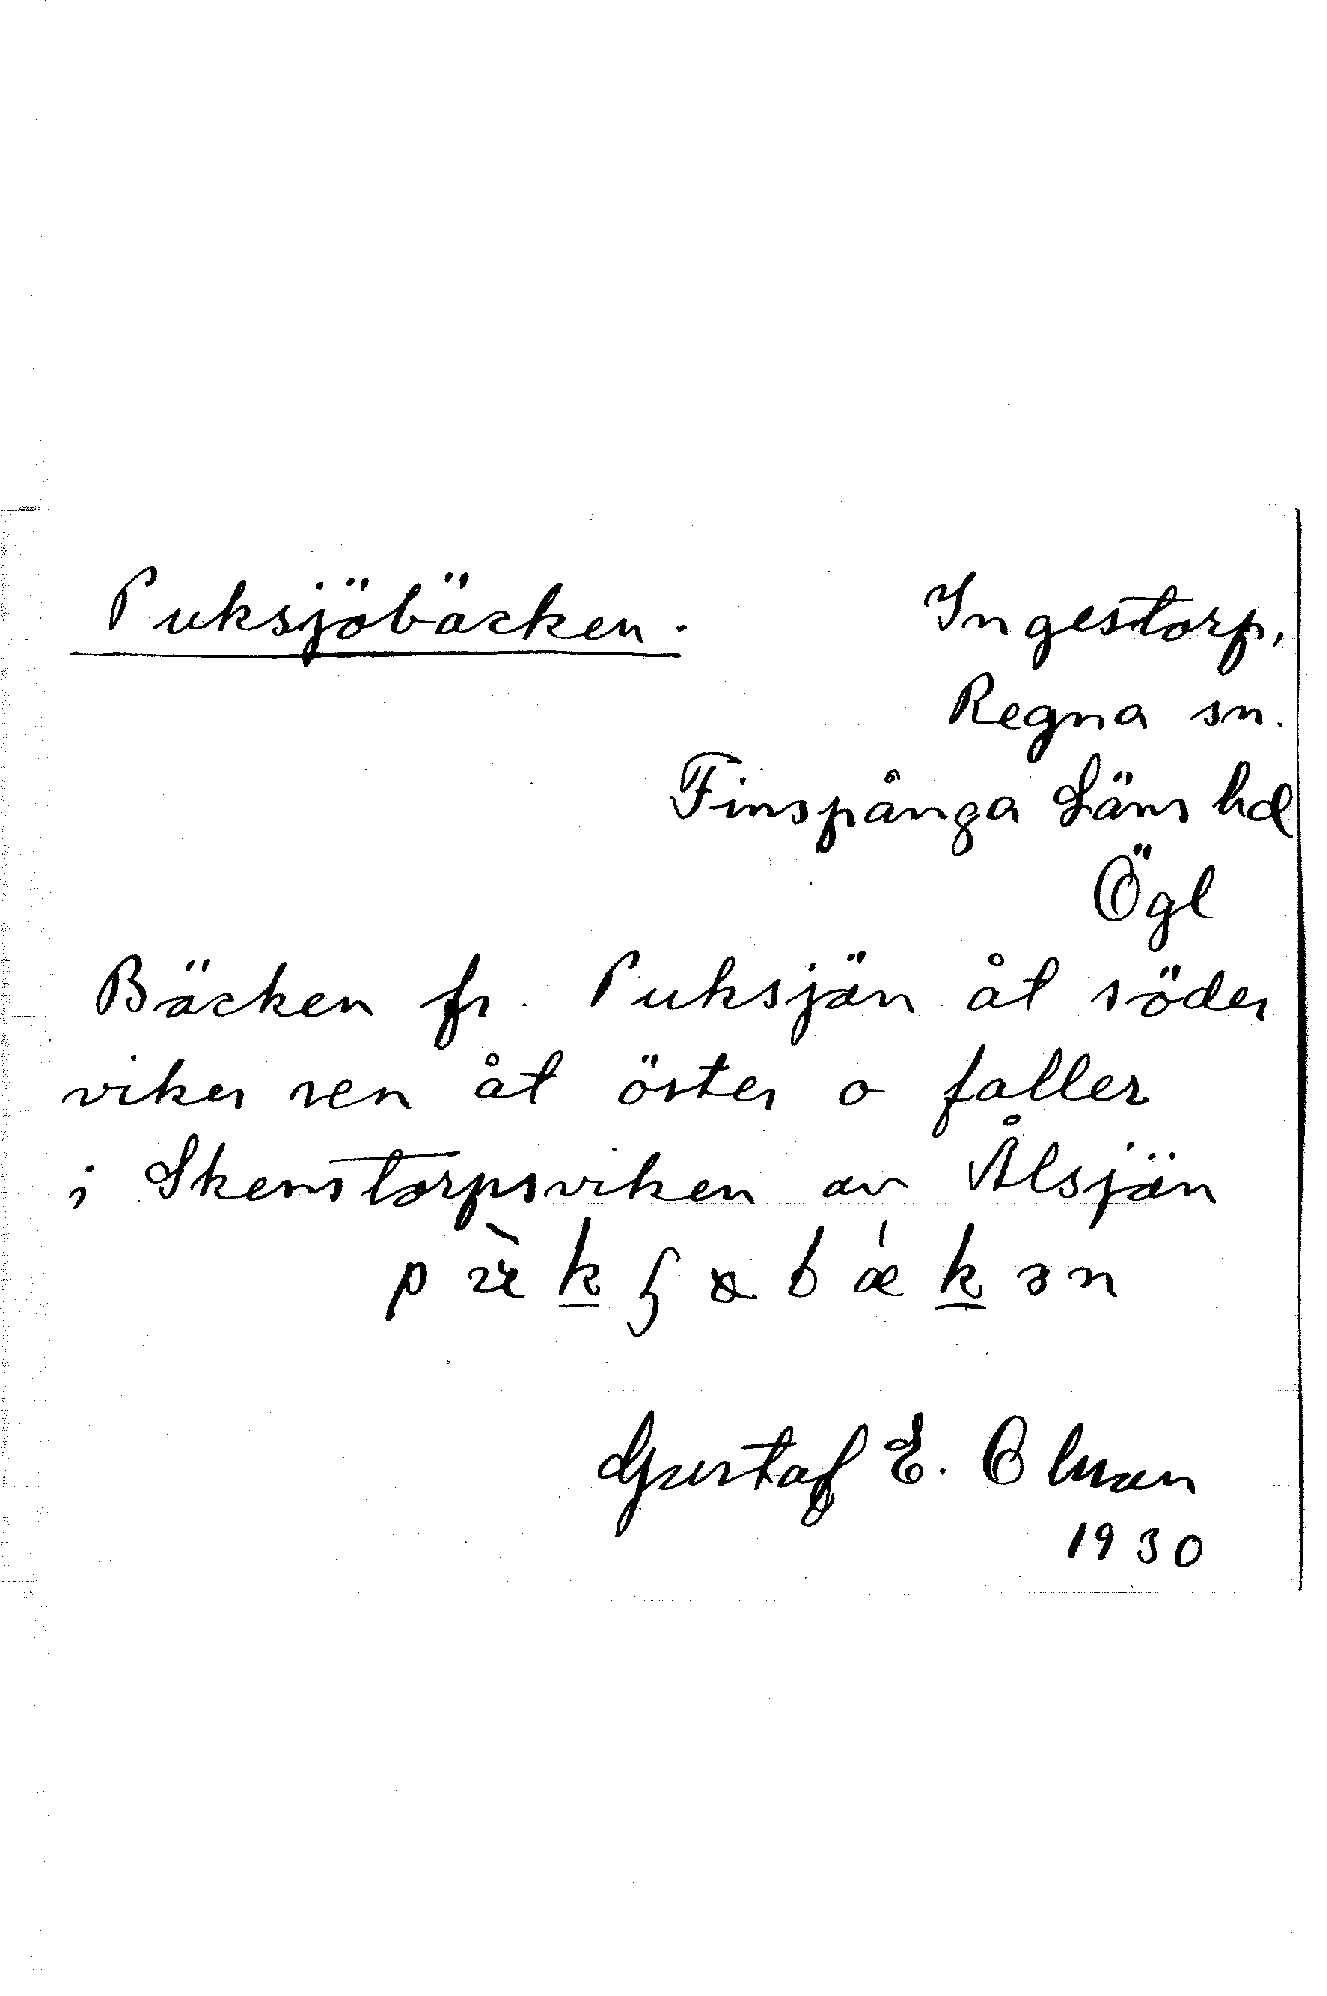 Puksjöbäcken.
Ingestorp,
Regna sn.
Finspånga Läns hd
Ögl
Bäcken fr. Puksjön åt söder
viker sen åt öster o faller
i Skenstorpsviken av Ålsjön
Gustaf E. Olman
1930